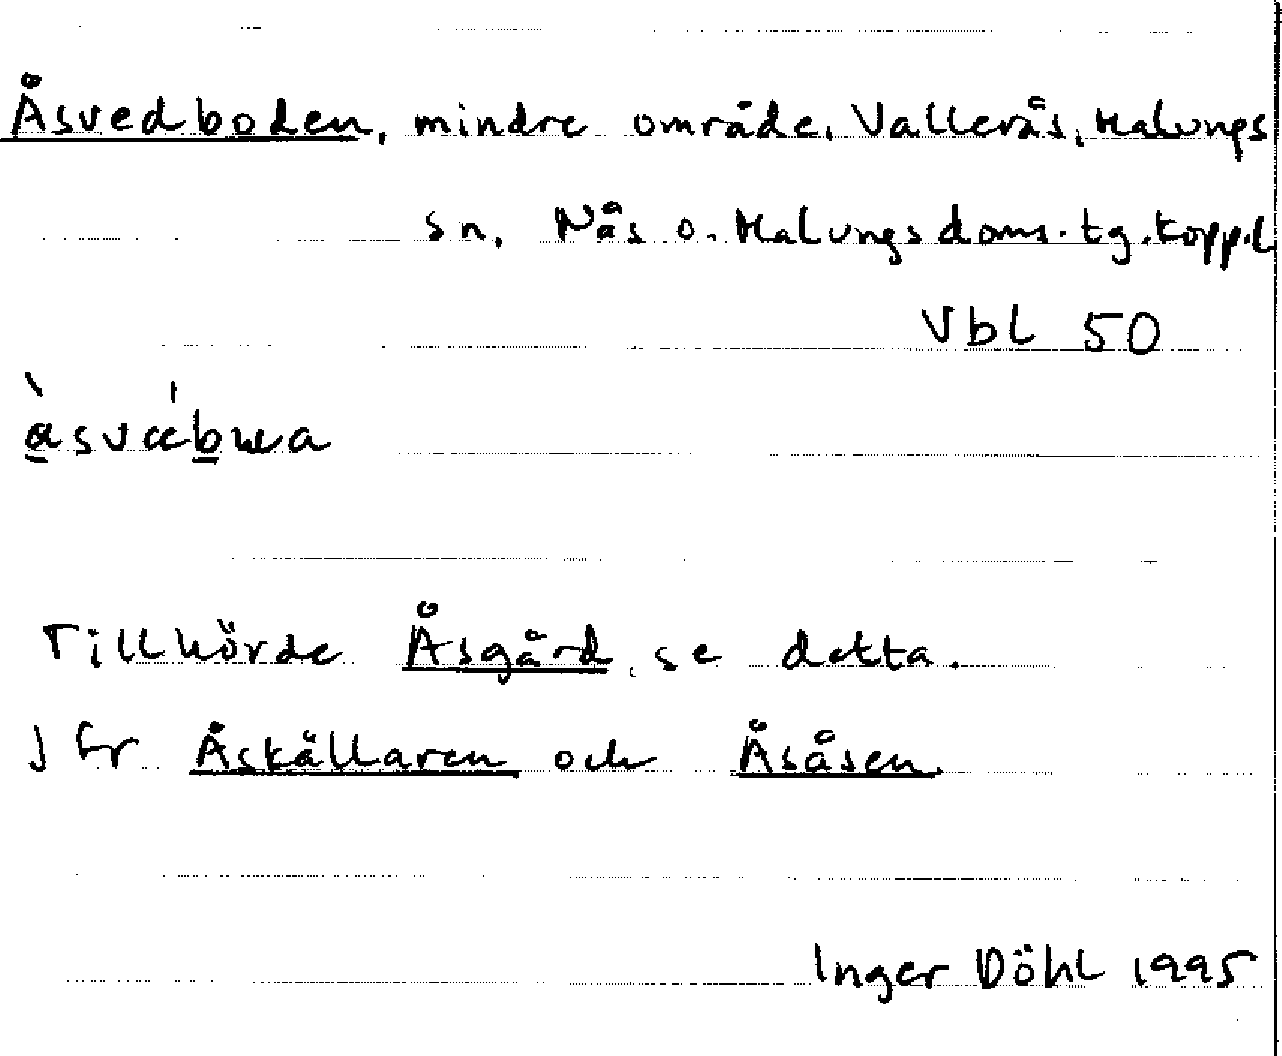 Åsvedboden, mindre område, Vallerås, Malungs
sn, Nås o. Malungs doms. tg. Kopp.l
Vbl 50
Tillhörde Åsgård, se detta.
Jfr Åskällaren och Åsåsen
Inger Döhl 1995